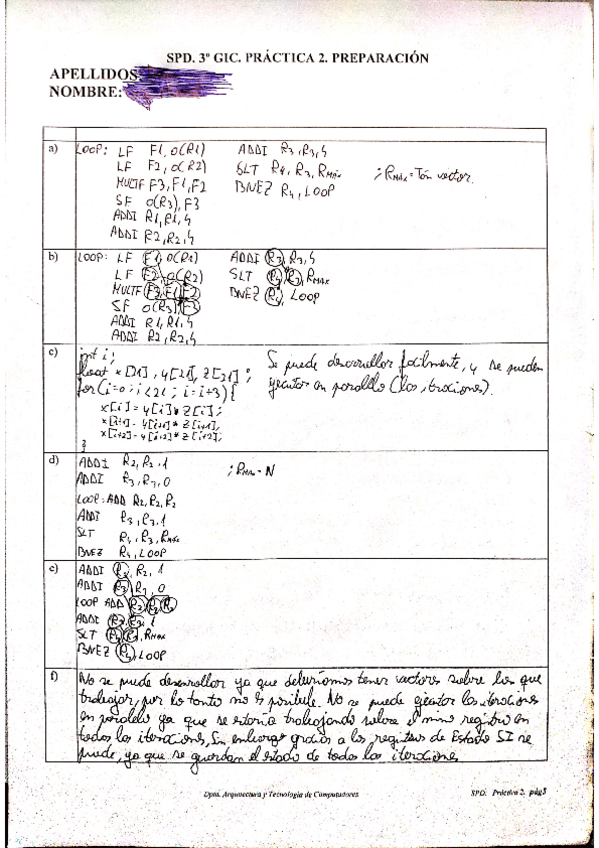 SPD. 3º GIC. PRÁCTICA 2. PREPARACIÓN
APELLIDOS:
NOMBRE:
a)
LOOP: LF F1, 0(R1)
LF F2, 0(R2)
MULTF F3, F1, F2
SF 0(R3), F3
ADDI R1, R1, 4
ADDI R2, R2, 4
ADDI R3, R3, 4
SLT R4, R3, RMAX ; RMAX = Tam vector.
BNEZ R4, LOOP
b)
LOOP: LF F1, 0(R1)
LF F2, 0(R2)
MULTF F3, F1, F2
SF 0(R3), F3
ADDI R1, R1, 4
ADDI R2, R2, 4
ADDI R3, R3, 4
SLT R4, R3, RMAX
BNEZ R4, LOOP
c)
int i;
float x[21], y[21], z[21];
for (i=0; i<21; i=i+3) {
x[i] = y[i] * z[i];
x[i+1] = y[i+1] * z[i+1];
x[i+2] = y[i+2] * z[i+2];
}
Se puede desarrollar facilmente, y se pueden
ejecutar en paralelo (las iteraciones).
d)
ADDI R2, R2, 1
ADDI R3, R3, 0 ; RMAX = N
LOOP: ADD R2, R2, R2
ADDI R3, R3, 1
SLT R4, R3, RMAX
BNEZ R4, LOOP
e)
ADDI R2, R2, 1
ADDI R3, R3, 0
LOOP ADD R2, R2, R2
ADDI R3, R3, 1
SLT R4, R3, RMAX
BNEZ R4, LOOP
f)
No se puede desarrollar ya que deberiamos tener vectores sobre los que
trabajar, por lo tanto no es posible. No se puede ejecutar las iteraciones
en paralelo ya que se estaria trabajando sobre el mismo registro en
todas las iteraciones, Sin embargo gracias a los registros de Estado SI se
puede, ya que se guardan el estado de todas las iteraciones
Dpto. Arquitectura y Tecnología de Computadores.
SPD. Práctica 2. pág5